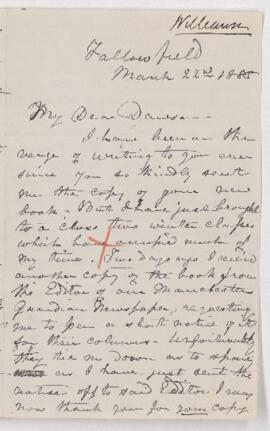 Williamson
Fallowfield
March 22nd 1885
My Dear Dawson –
I have been on the
verge of writing to you ever
since you so kindly sent
me the copy of your new
book – But I have just brought
to a close two winter classes
which have occupied much of
my time. Two days ago I received
another copy of the book from
the Editor of our Manchester
Guardian Newspaper, requesting
me to pen a short notice of it
for their columns – Unfortunately
they tie me down as to space
as I have just sent the
notice off to said Editor. I may
now thank you for your copy